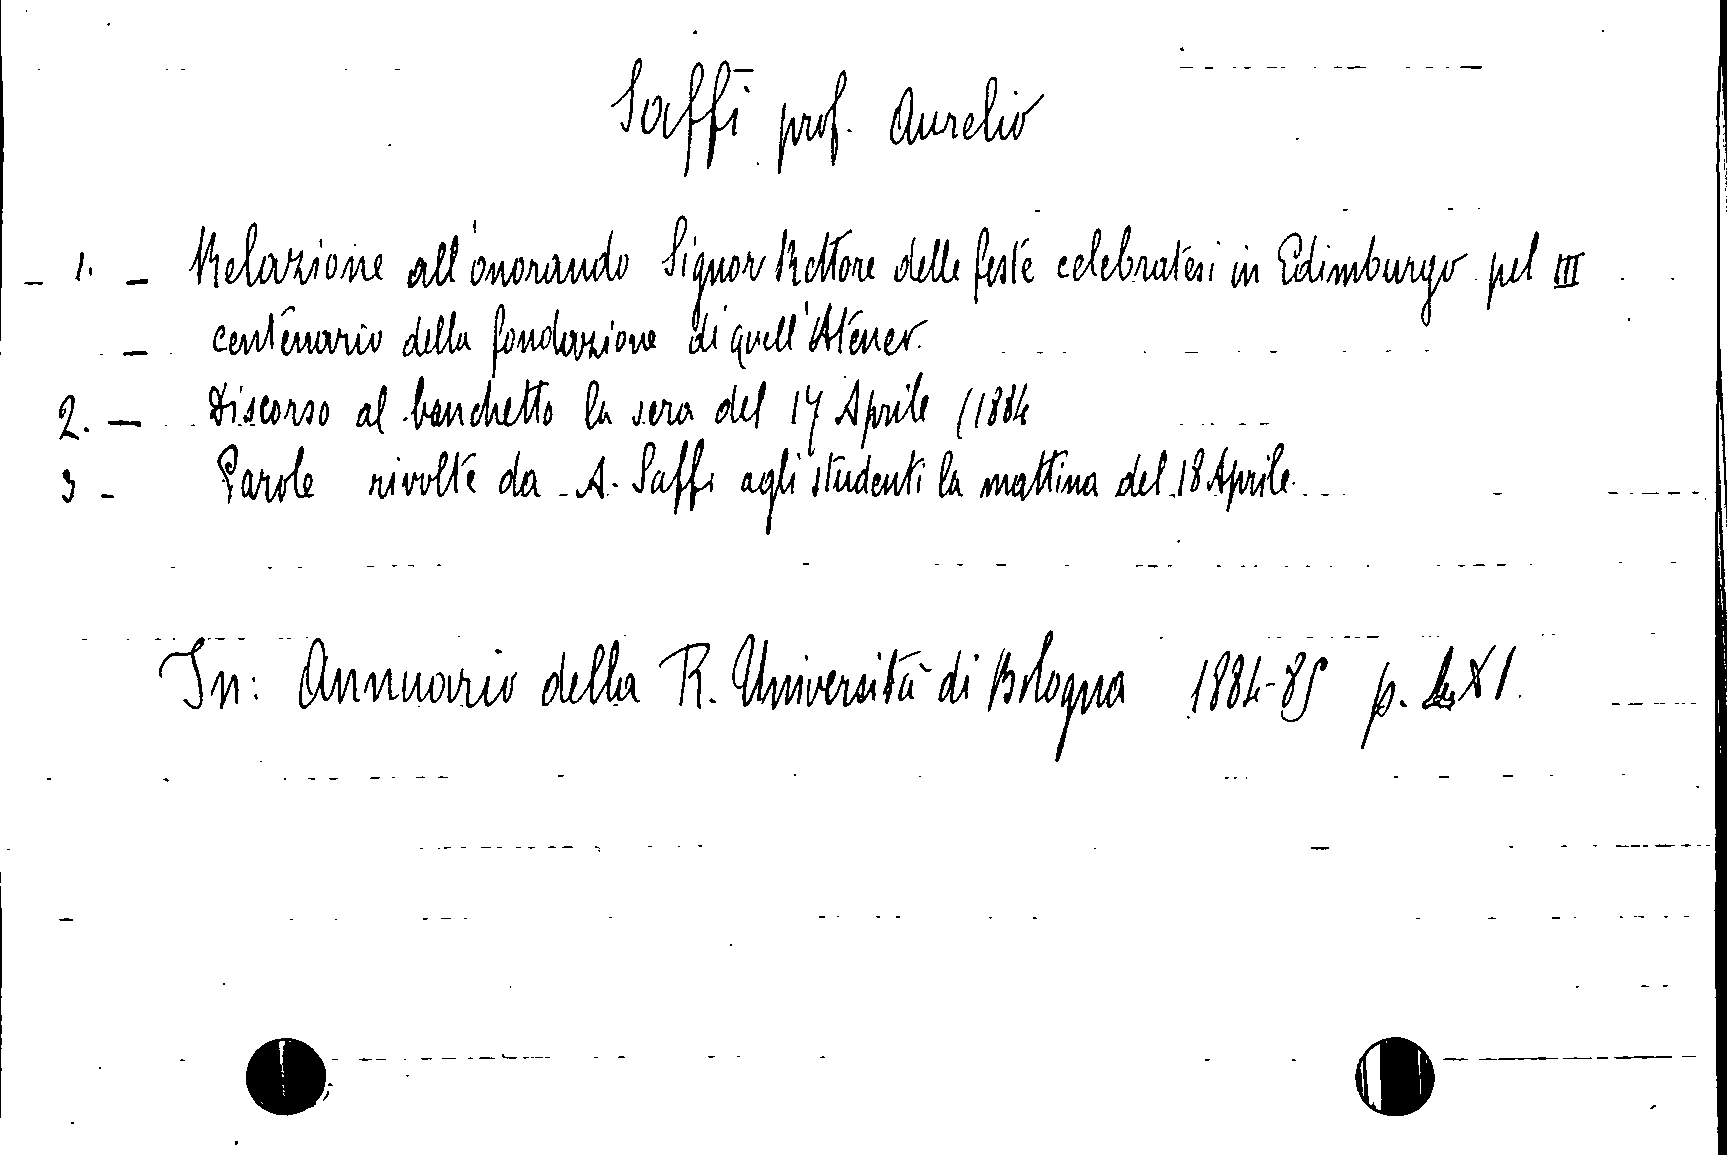 Saffi prof. Aurelio
1. - Relazione all'onorando Signor Rettore delle feste celebratesi in Edimburgo pel III
- centenario della fondazione di quell'Ateneo.
2. - Discorso al banchetto la sera del 17 Aprile (1884
3 - Parole rivolte da A. Saffi agli studenti la mattina del 18 Aprile.
In: Annuario della R. Università di Bologna 1884-85 p.